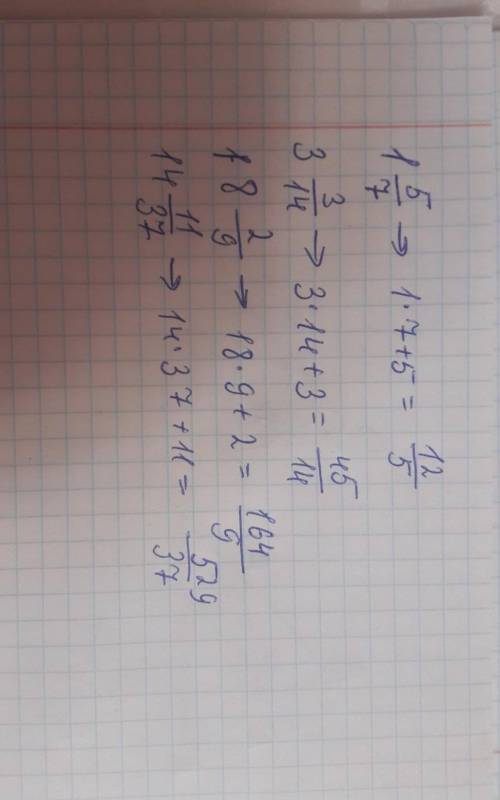 1 5/7 → 1·7+5 = 12/5
3 3/14 → 3·14+3 = 45/14
18 2/9 → 18·9+2 = 164/9
14 11/37 → 14·37+11 = 529/37